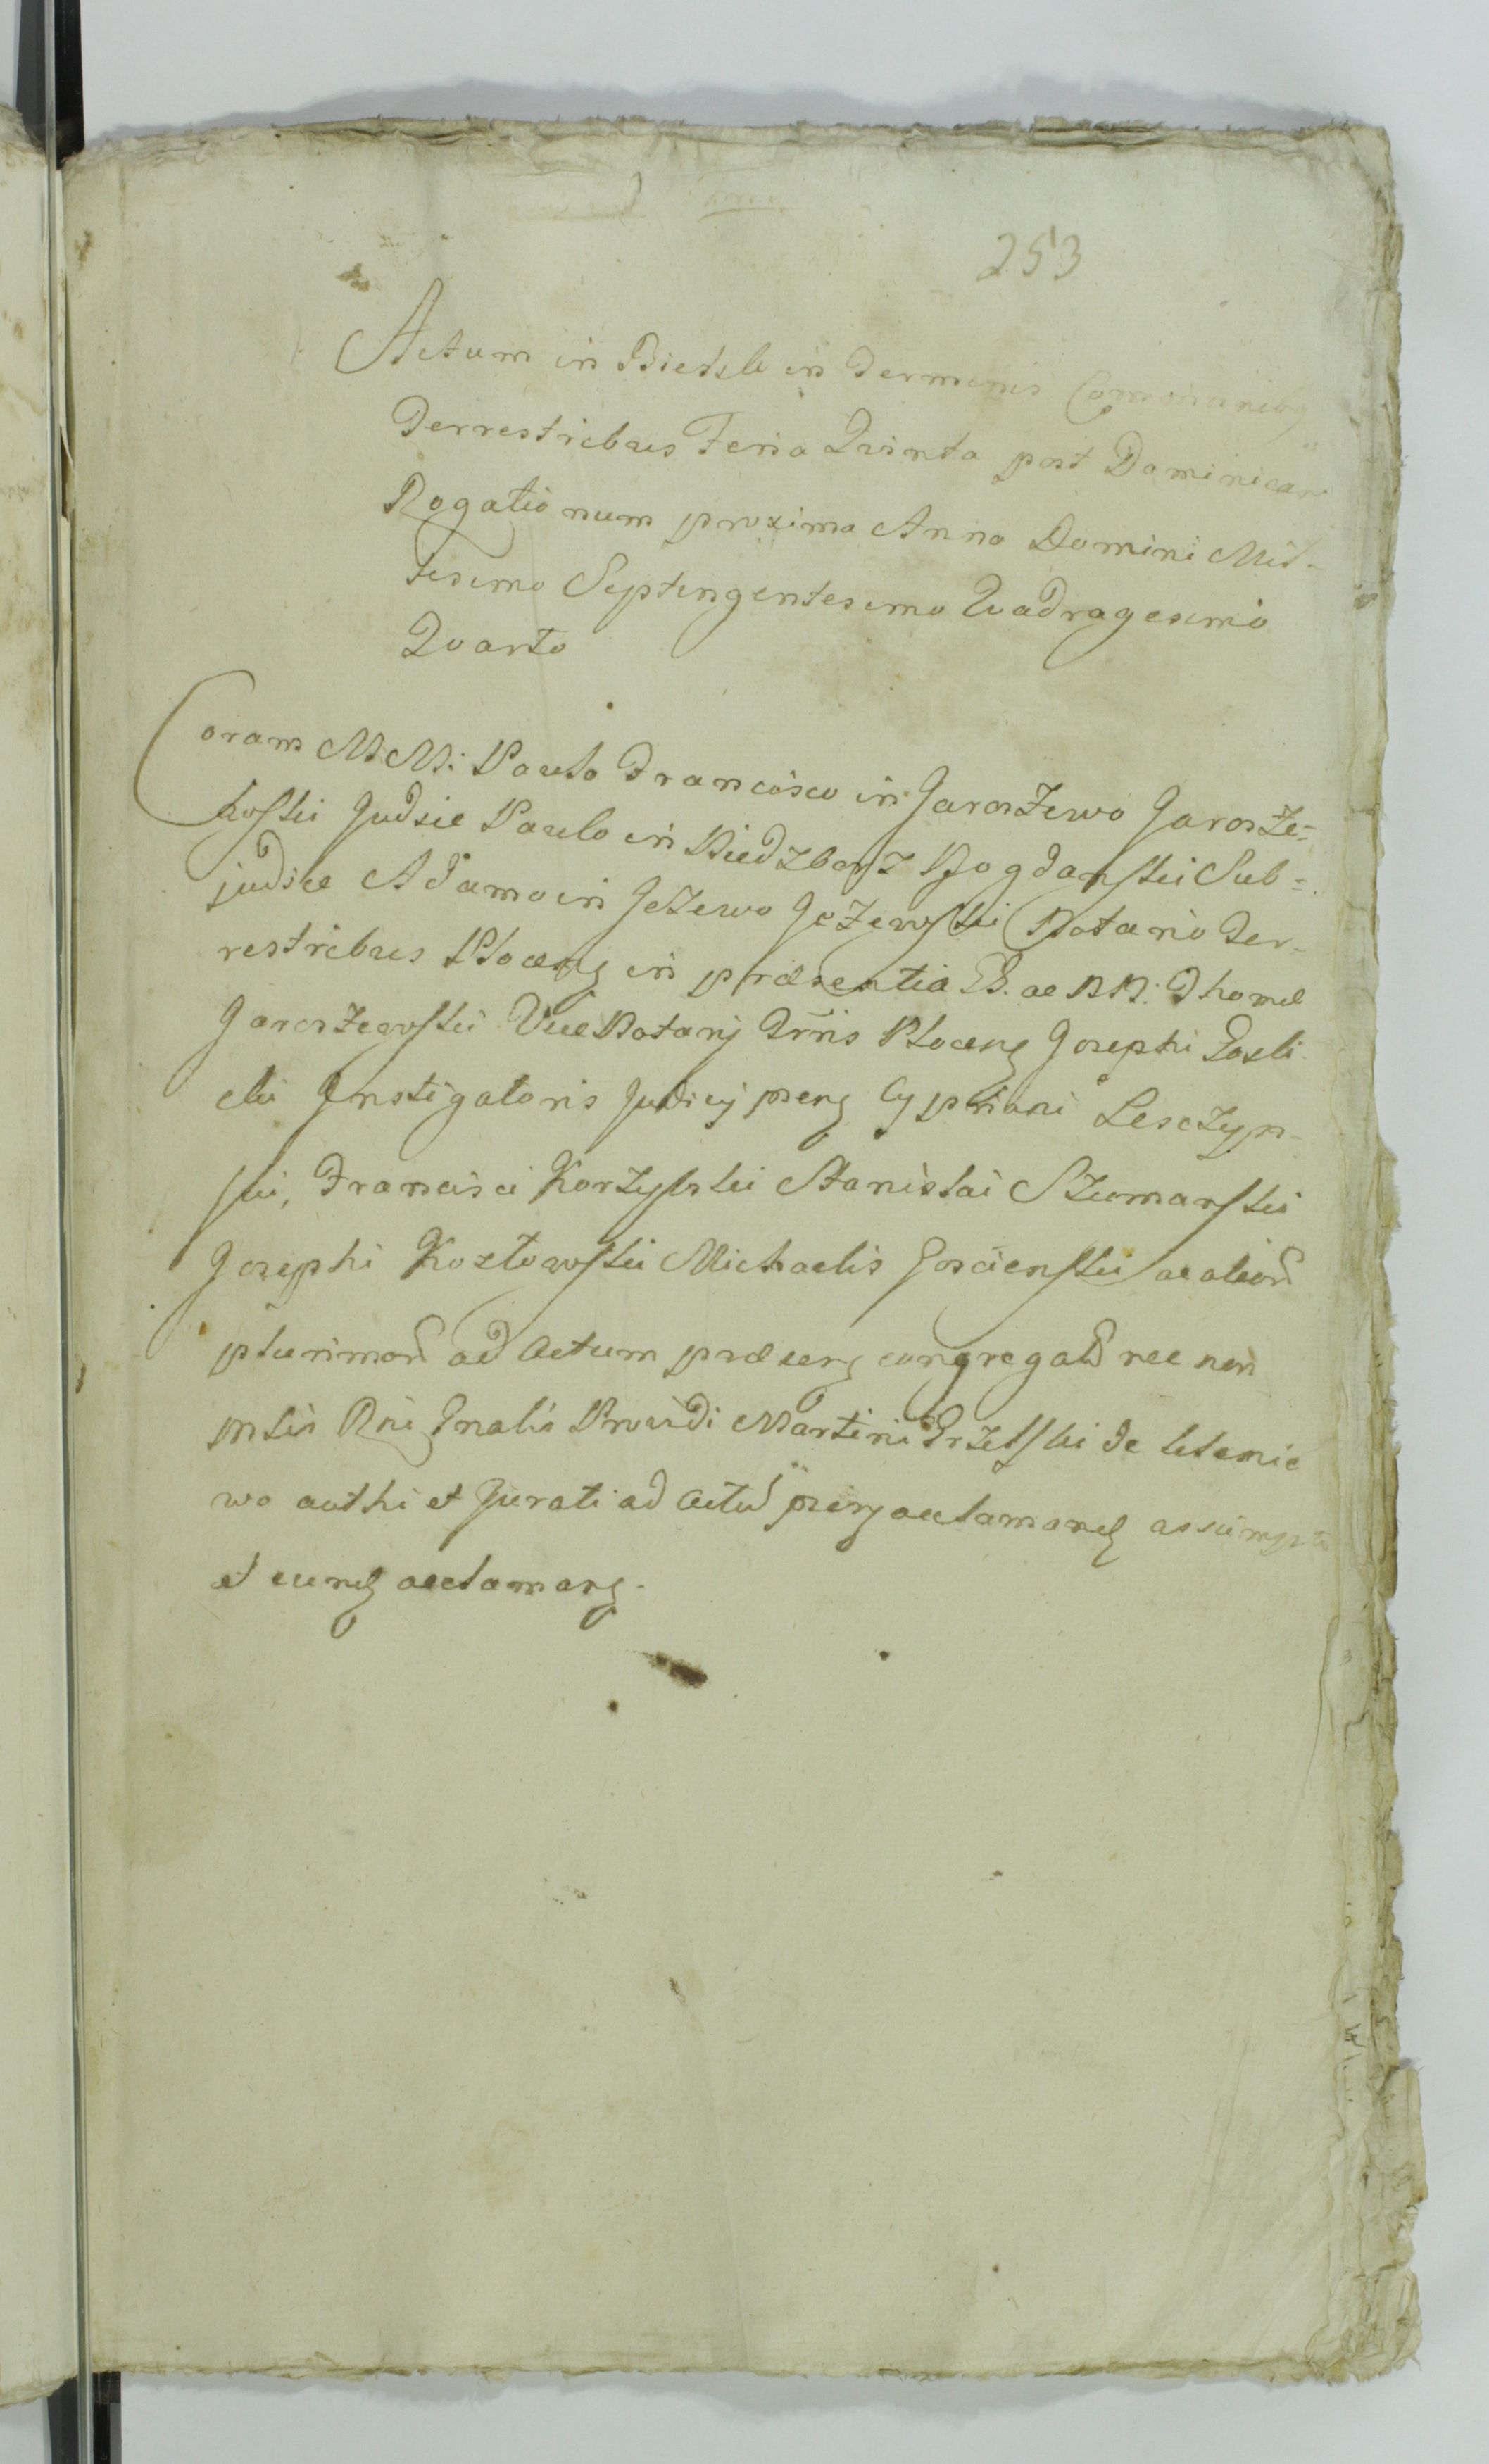 253
Actum in Bielsk in Terminis Communibq
Terrestribus Feria Quinta post Dominicam
Rogationum proxima Anno Domini Mil-
lesimo Septingentesimo Quadragesimo
Quarto
Coram MM: Paulo Francisco in Jaroszewo Jarosze-
wski Judice Paulo in Niedzborz Bogdanski Sub=
judice Adamo in Jeżewo Jeżewski Notario Ter-
restribus Plocens in præsentia G. ac NN: Thomæ
Jaroszewski Vice Notarij Trris Plocens Josephi
Instigatoris Judicij prens Cypriani Lesczyn-
ski, Francisci Korzybski Stanislai Szumanski
Josephi Kozłowski Michaelis Goscienski ac alior
plurimor ad Actum præsens congregator nec non
mlis Rni Gnalis Providi Martini
wo authi et Jurati ad Actu prens acclamand assumpti
et eund acclaman.